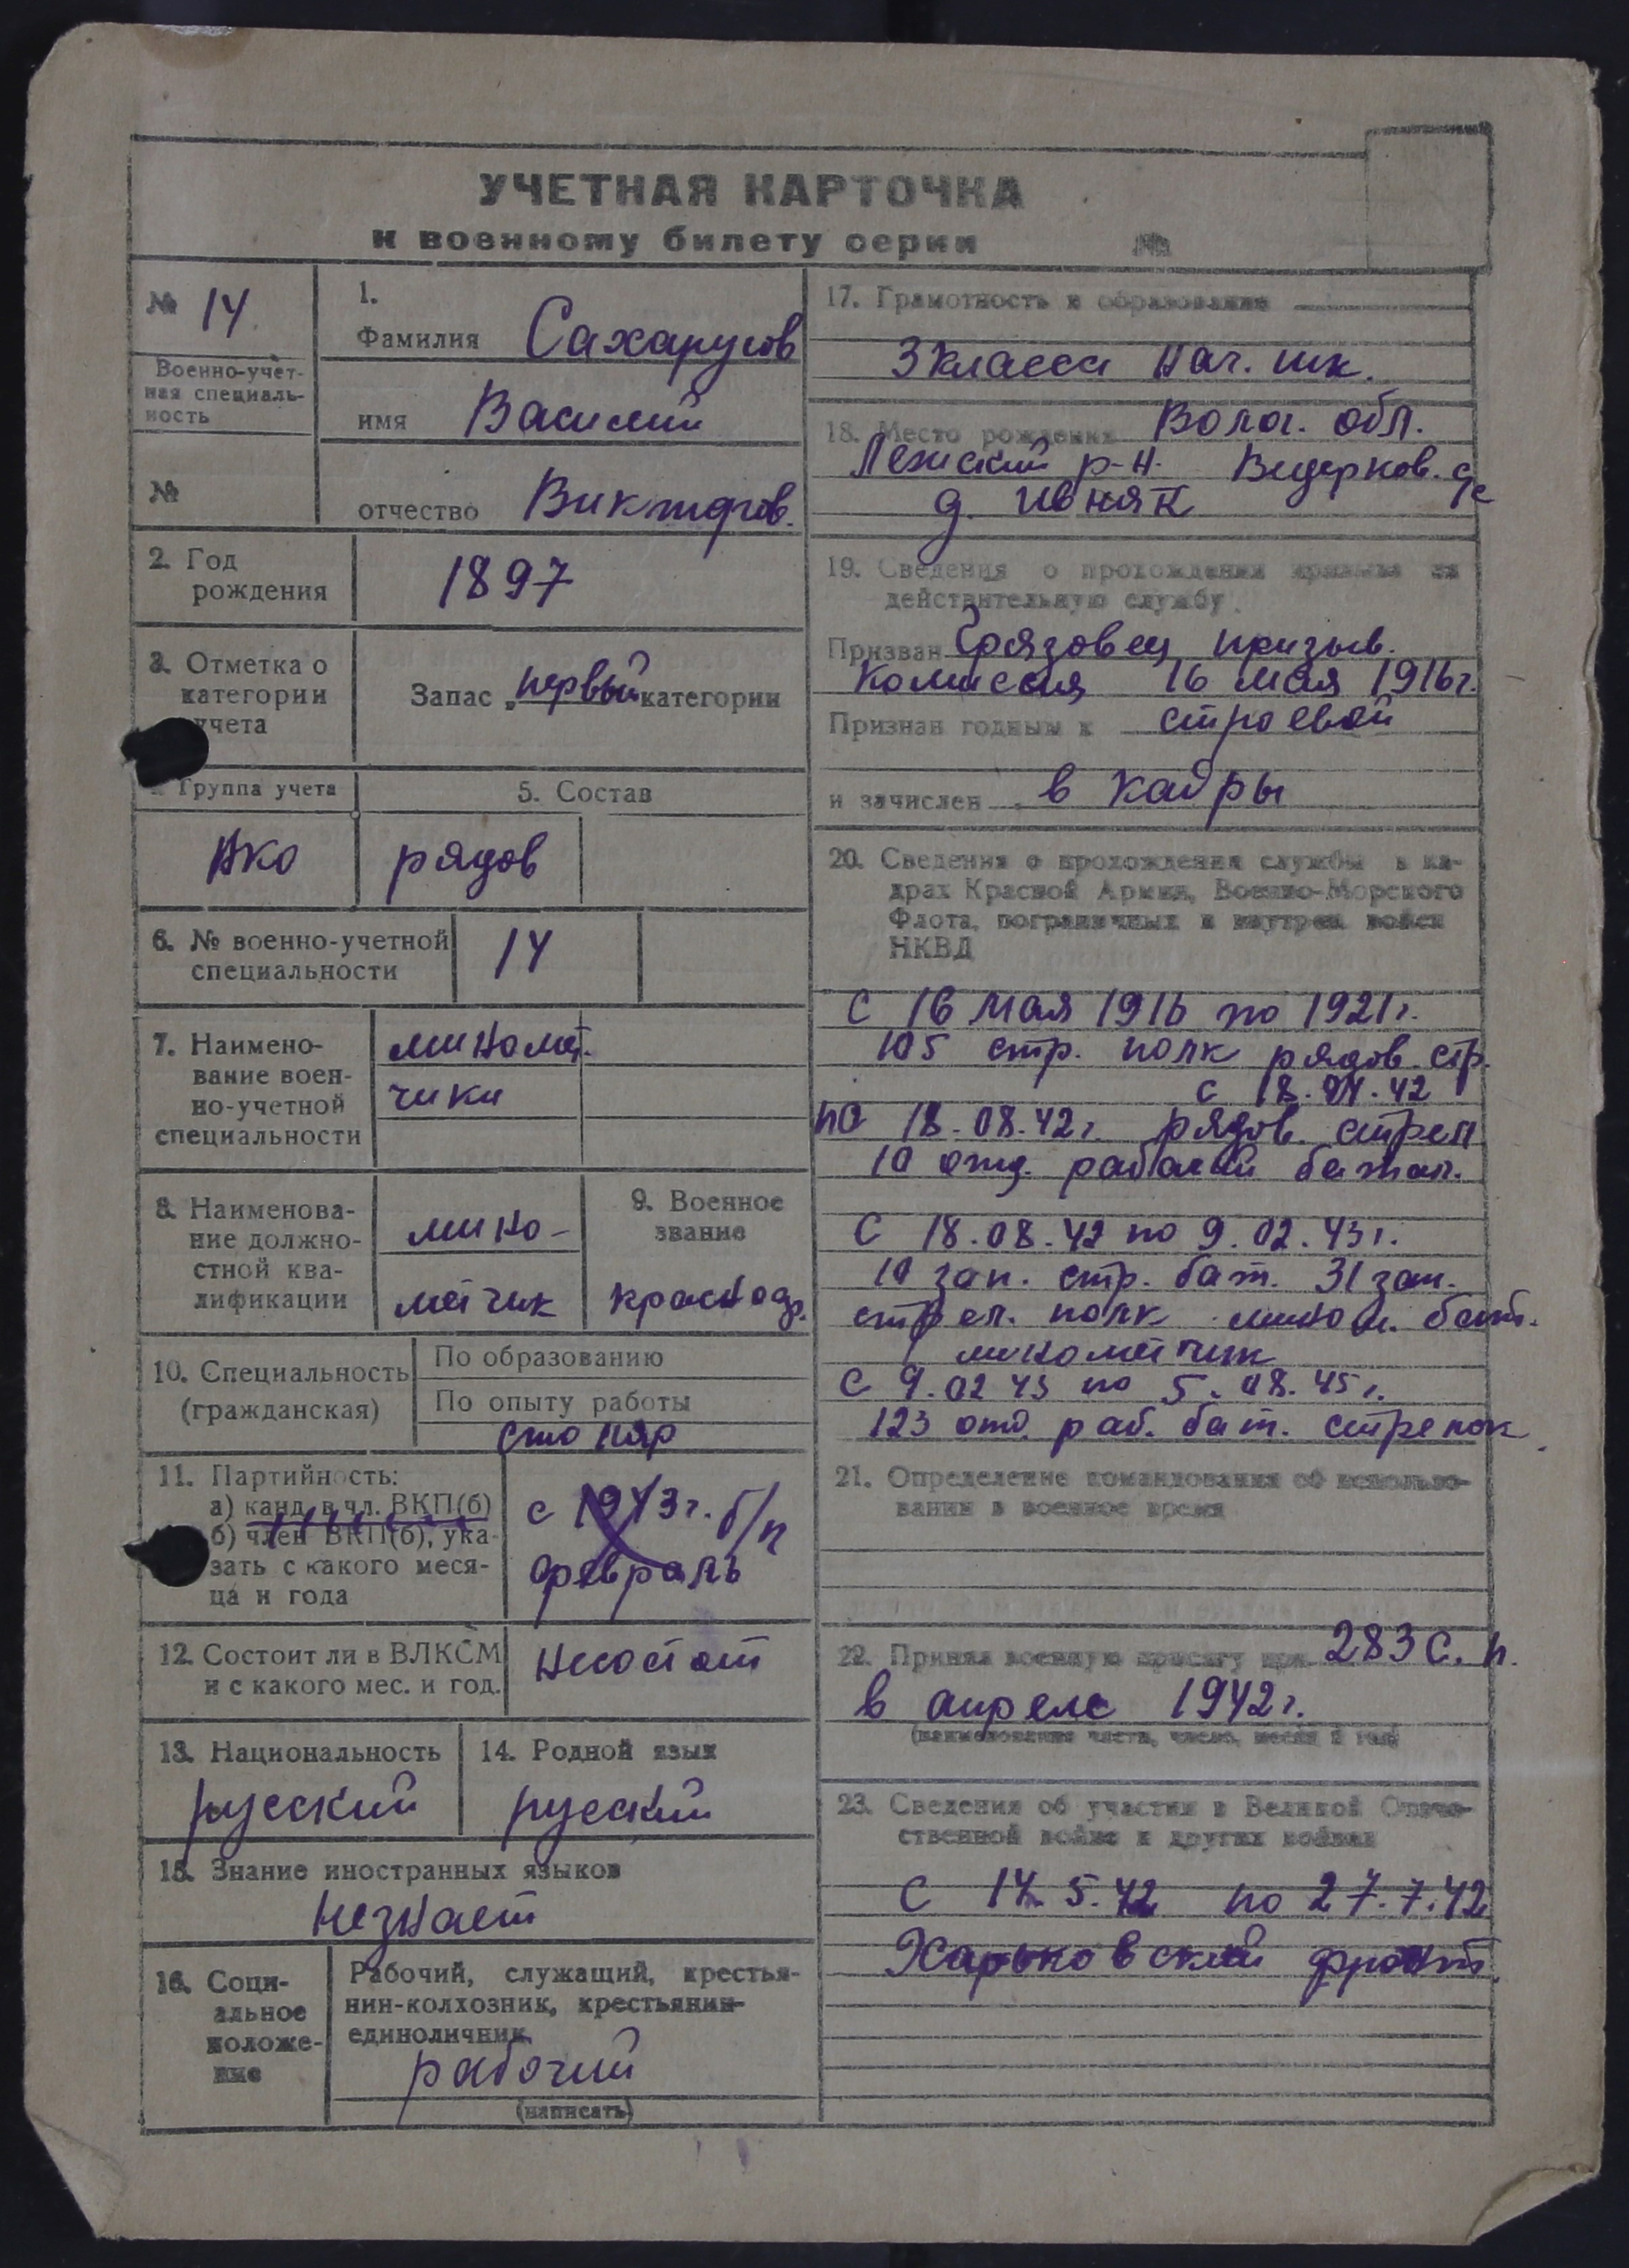 УЧЕТНАЯ КАРТОЧКА
к военному билету серии №
№ 14
Военно-учет-
ная специаль-
ность
№
1.
Фамилия Сахарусов
имя Василий
отчество Викторов.
2. Год
рождения
1897
3. Отметка о
категории
учета
Запас „ первый категории
Группа учета
5. Состав
рядов
6. № военно-учетной
специальности
14
7. Наимено-
вание воен-
но-учетной
специальности
миномет.
чики
8. Наименова-
ние должно-
стной ква-
лификации
мино-
метчик
9. Военное
звание
красноар.
10. Специальность
(гражданская)
По образованию
По опыту работы
столяр
11. Партийность:
а) канд. в чл. ВКП(б)
б) член ВКП(б), ука-
зать с какого меся-
ца и года
с 1943 г. б/п
февраль
12. Состоит ли в ВЛКСМ
и с какого мес. и год.
несостоит
13. Национальность
русский
14. Родной язык
русский
15. Знание иностранных языков
незнает
16. Соци-
альное
положе-
ние
Рабочий, служащий, крестья-
нин-колхозник, крестьянин-
единоличник
рабочий
(написать)
17. Грамотность и образование
3 класса нач. шк.
18. Место рождения Волог. обл.
Лежский р-н. Ведерков. с/с
д. Ивняк
19. Сведения о прохождении призыва на
действительную службу.
Призван Грязовец призыв.
комиссия 16 мая 1916 г.
Признан годным к строевой
и зачислен в кадры
20. Сведения о прохождении службы в ка-
драх Красной Армии, Военно-Морского
Флота, пограничных и внутрен войск
НКВД
С 16 мая 1916 по 1921 г.
105 стр. полк рядов. стр.
с 18.04.42
по 18.08.42 г. рядов. стрел
10 отд. рабочий батал.
С 18.08.42 по 9.02.43 г.
10 зап. стр. бат. 31 зап.
стрел. полк мином. бат.
минометчик
С 9.02 43 по 5.08.45 г.
123 отд. раб. бат. стрелок
21. Определение командования об использо-
вании в военное время
22. Принял военную присягу при 283 с. п.
в апреле 1942 г.
(наименование части, число, месяц и год)
23. Сведения об участии в Великой Отече-
ственной войне и других войнах
С 14.5.42 по 27.7.42
Харьковский фронт.